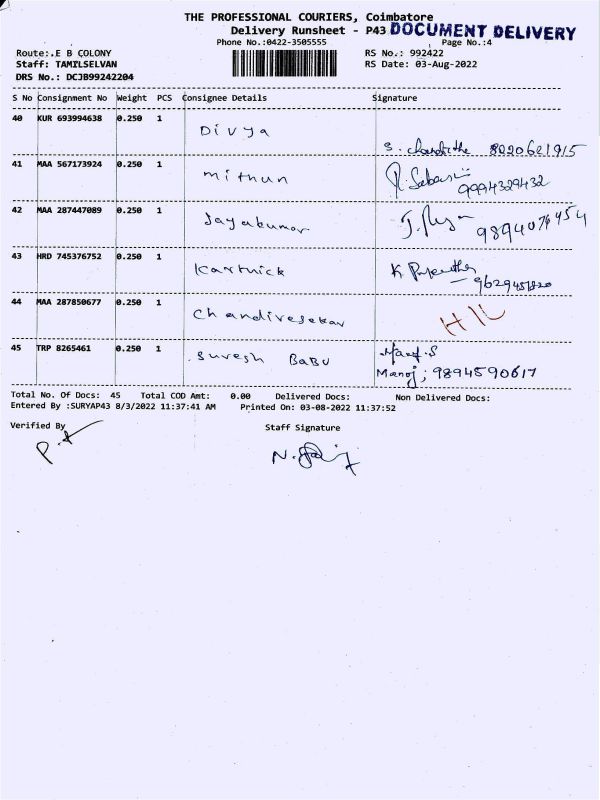 THE PROFESSIONAL COURIERS, Coimbatore
Delivery Runsheet - P43 DOCUMENT DELIVERY
Phone No.:0422-3505555 Page No.:4
Route:.E B COLONY RS No.: 992422
Staff: TAMILSELVAN RS Date: 03-Aug-2022
DRS No.: DCJB99242204
S No Consignment No Weight PCS Consignee Details Signature
40 KUR 693994638 0.250 1 Divya
S. 8220621915
41 MAA 567173924 0.250 1 mithun
9994329432
42 MAA 287447089 0.250 1 Jayakumar
J.
43 HRD 745376752 0.250 1 Karthick
K
44 MAA 287850677 0.250 1 Chandiresekar
45 TRP 8265461 0.250 1 Suresh BABU
Manoj; 9894590617
Total No. Of Docs: 45 Total COD Amt: 0.00 Delivered Docs: Non Delivered Docs:
Entered By :SURYAP43 8/3/2022 11:37:41 AM Printed On: 03-08-2022 11:37:52
Verified By Staff Signature